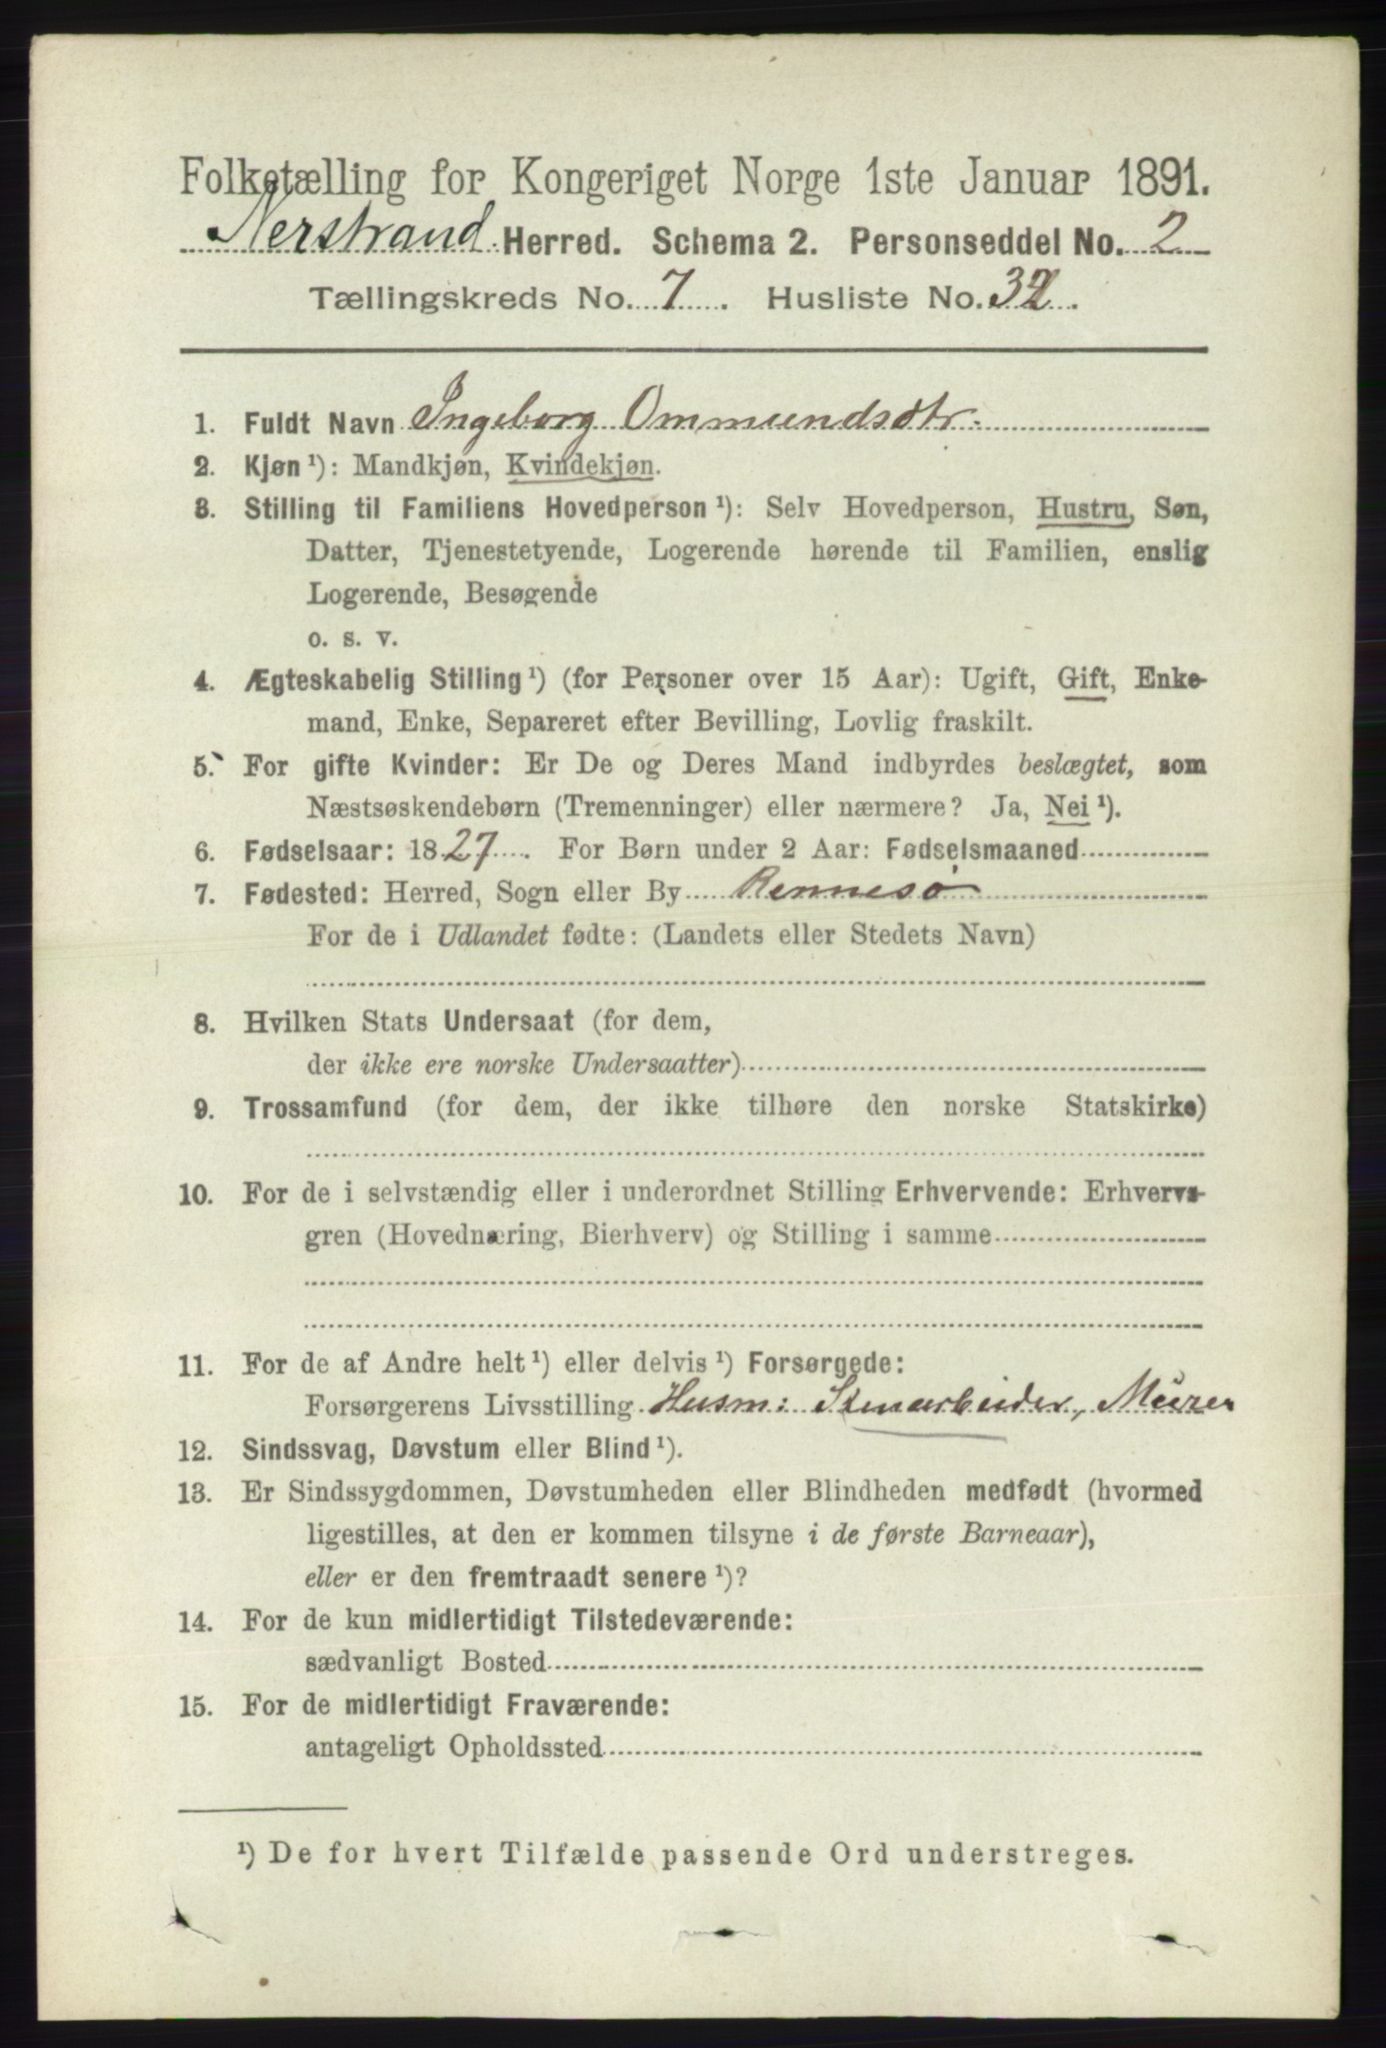 Folketælling for Kongeriget Norge 1ste Januar 1891.
Nerstrand Herred. Schema 2. Personseddel No. 2
Tællingskreds No. 7. Husliste No. 32.
1. Fuldt Navn Ingeborg Ommundsdtr.
2. Kjøn ¹): Mandkjøn, Kvindekjøn.
3. Stilling til Familiens Hovedperson ¹): Selv Hovedperson, Hustru, Søn,
Datter, Tjenestetyende, Logerende hørende til Familien, enslig
Logerende, Besøgende
o. s. v.
4. Ægteskabelig Stilling ¹) (for Personer over 15 Aar): Ugift, Gift, Enke-
mand, Enke, Separeret efter Bevilling, Lovlig fraskilt.
5. For gifte Kvinder: Er De og Deres Mand indbyrdes beslægtet, som
Næstsøskendebørn (Tremenninger) eller nærmere? Ja, Nei ¹).
6. Fødselsaar: 1827. For Børn under 2 Aar: Fødselsmaaned
7. Fødested: Herred, Sogn eller By Rennesø
For de i Udlandet fødte: (Landets eller Stedets Navn)
8. Hvilken Stats Undersaat (for dem,
der ikke ere norske Undersaatter)
9. Trossamfund (for dem, der ikke tilhøre den norske Statskirke)
10. For de i selvstændig eller i underordnet Stilling Erhvervende: Erhvervs-
gren (Hovednæring, Bierhverv) og Stilling i samme
11. For de af Andre helt ¹) eller delvis ¹) Forsørgede:
Forsørgerens Livsstilling Husm: Stenarbeider, Murer
12. Sindssvag, Døvstum eller Blind ¹).
13. Er Sindssygdommen, Døvstumheden eller Blindheden medfødt (hvormed
ligestilles, at den er kommen tilsyne i de første Barneaar),
eller er den fremtraadt senere ¹)?
14. For de kun midlertidigt Tilstedeværende:
sædvanligt Bosted
15. For de midlertidigt Fraværende:
antageligt Opholdssted
¹) De for hvert Tilfælde passende Ord understreges.